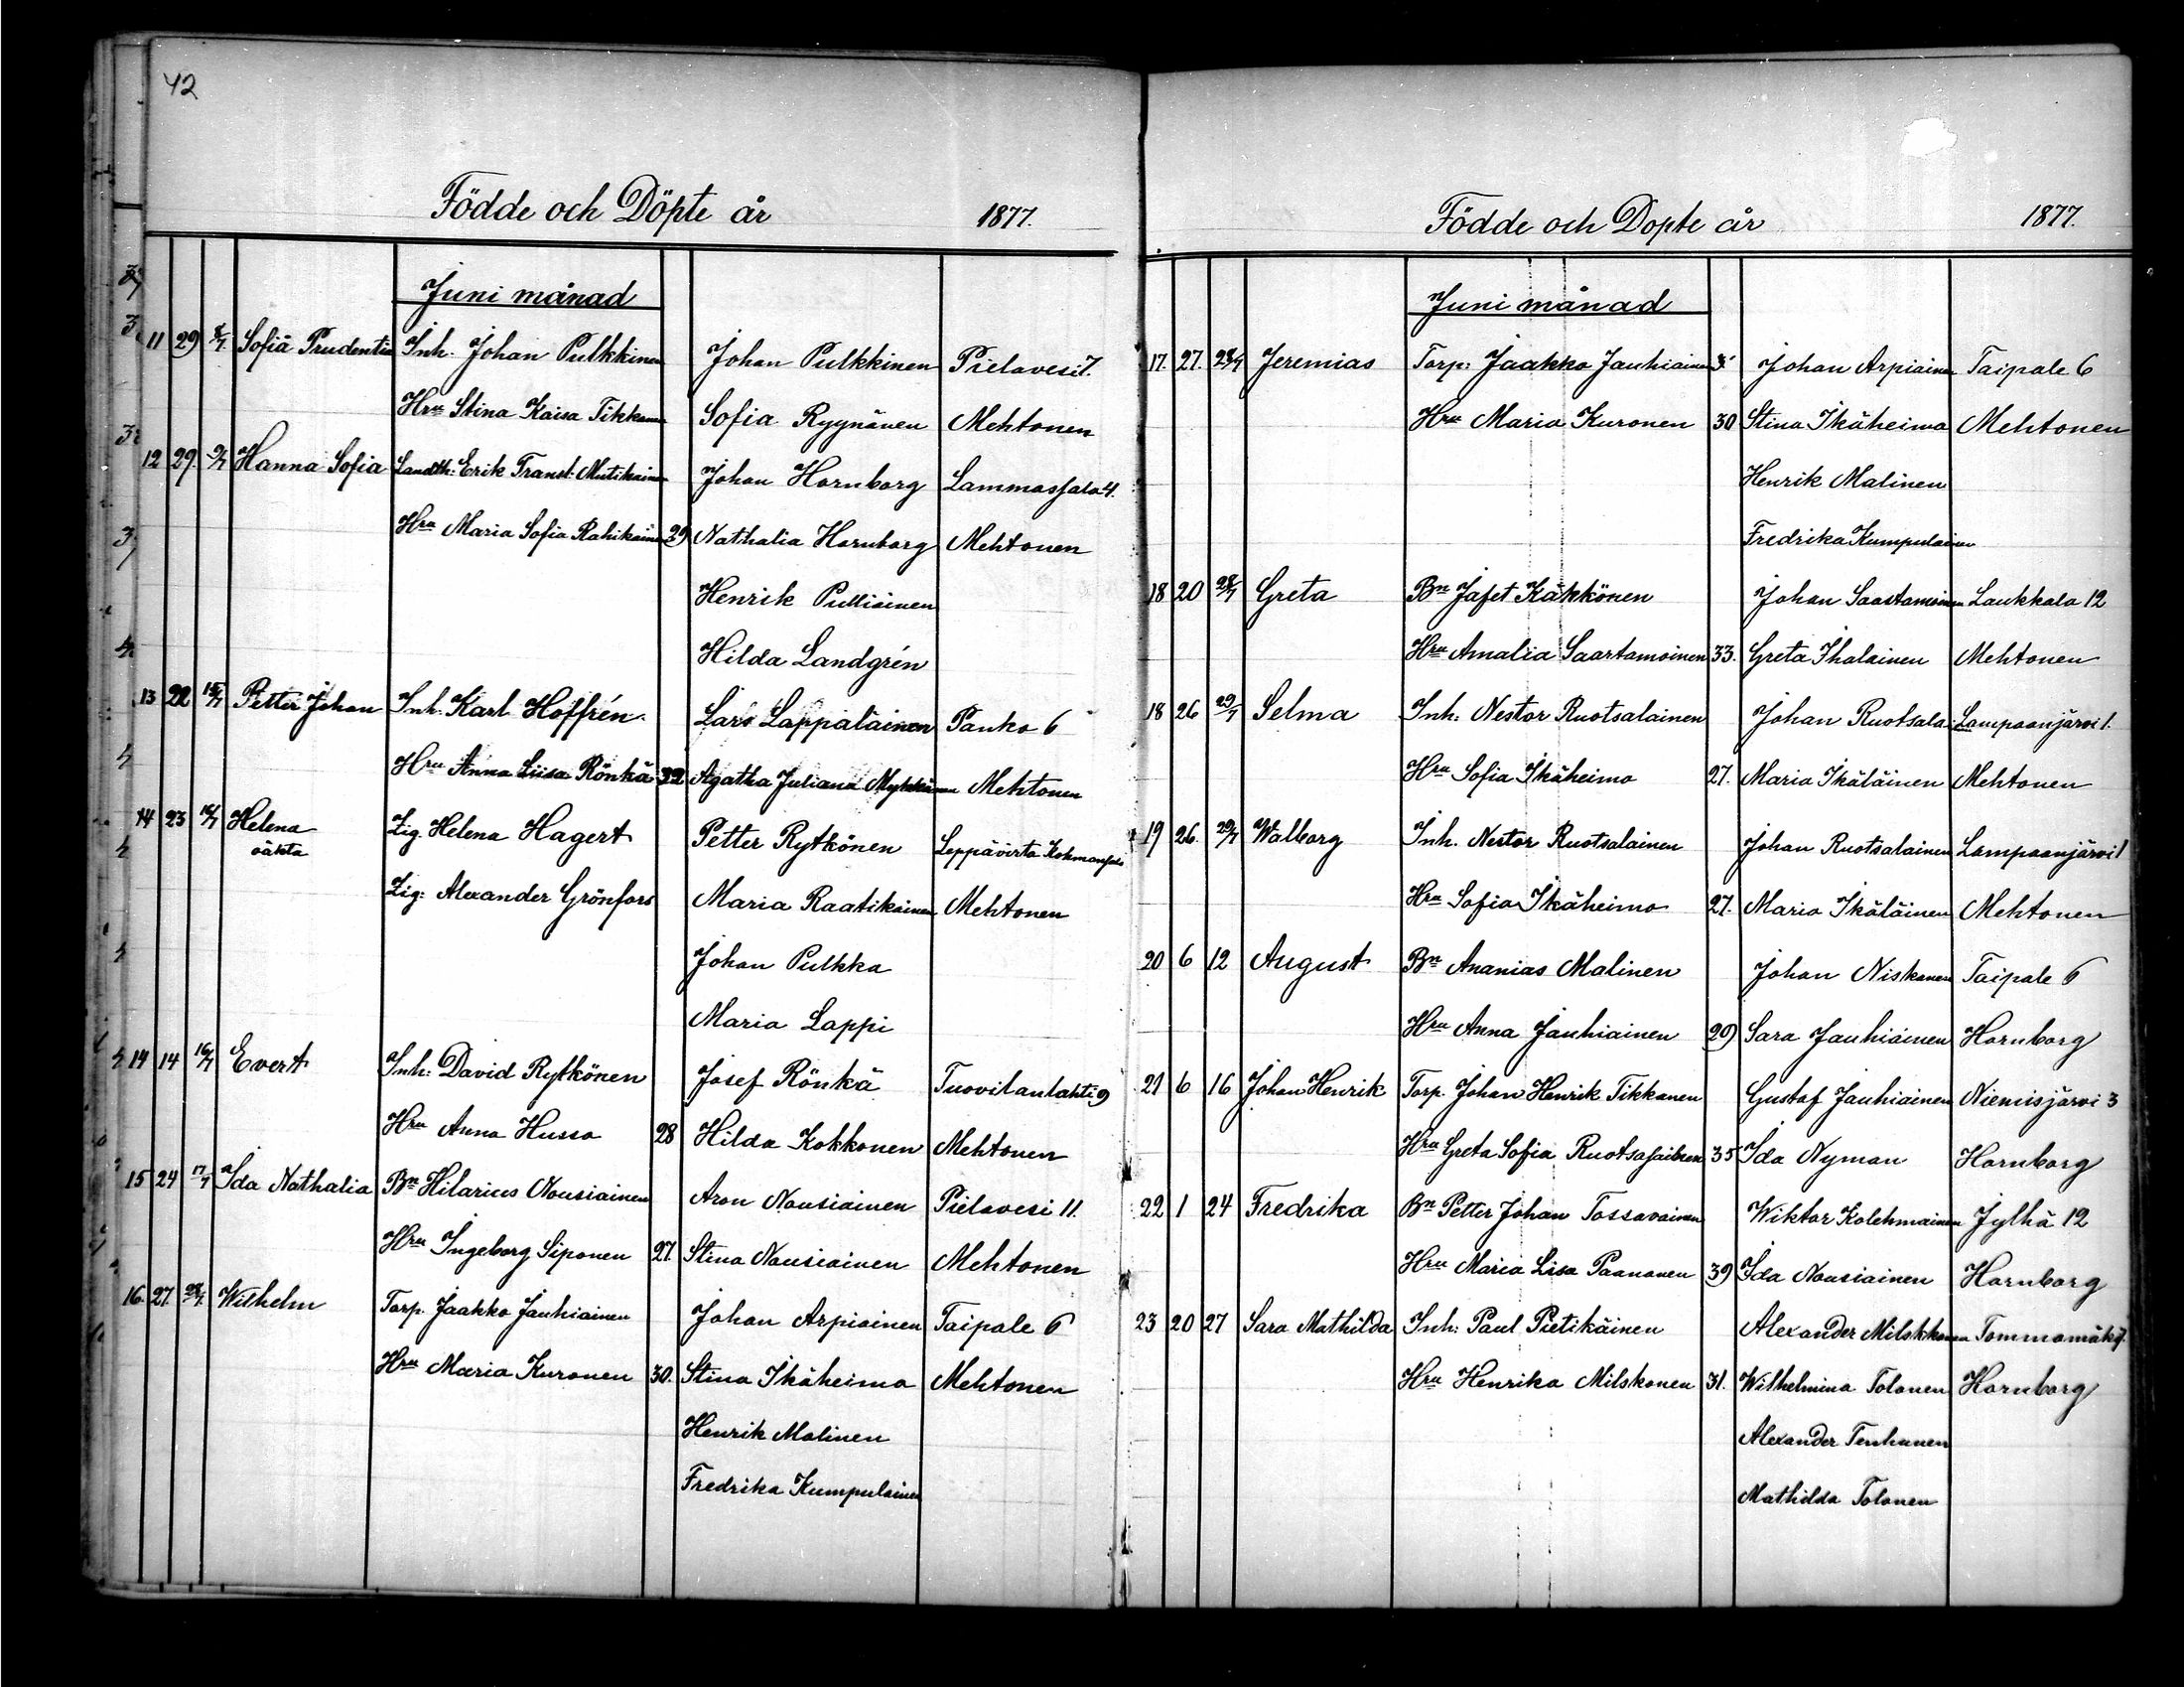 42
Födde och Döpte år 1877.
Juni månad
11 29 8/7 Sofia Prudentia Inh. Johan Pulkkinen Johan Pulkkinen Pielavesi 7.
Hru Stina Kaisa Tikkanen Sofia Ryynänen Mehtonen
12 29. 9/7 Hanna Sofia Landtb: Erik Transt. Mutikainen Johan Hornborg Lammassalo 4.
Hru Maria Sofia Rahikainen 29 Nathalia Hornborg Mehtonen
Henrik Pulliainen
Hilda Landgrén
13 22 15/7 Petter Johan Inh. Karl Hoffrén. Lars Lappalainen Panko 6
Hru Anna Liisa Rönkä 32 Agatha Juliana Mykkänen Mehtonen
14 23 16/7 Helena Zig. Helena Hagert Petter Rytkönen Leppävirta
oäkta
Zig: Alexander Grönfors Maria Raatikainen Mehtonen
Johan Pulkka
Maria Lappi
14 14 16/7 Evert Inh: David Rytkönen Josef Rönkä Tuovilanlahti 9
Hru Anna Husso 28 Hilda Kokkonen Mehtonen
15 24 17/7 Ida Nathalia Bn Hilarius Nousiainen Aron Nousiainen Pielavesi 11.
Hru Ingeborg Siponen 27. Stina Nousiainen Mehtonen
16. 27. 28/7. Wilhelm Torp. Jaakko Jauhiainen Johan Arpiainen Taipale 6
Hru Maria Kuronen 30. Stina Ikäheimo Mehtonen
Henrik Malinen
Fredrika Kumpulainen
Födde och Dopte år 1877.
Juni månad
17. 27. 28/7 Jeremias Torp: Jaakko Jauhiainen Johan Arpiainen Taipale 6
Hru Maria Kuronen 30 Stina Ikäheimo Mehtonen
Henrik Malinen
Fredrika Kumpulainen
18 20 28/7 Greta Bn Jafet Käkkönen Johan Saastamoinen Laukkala 12
Hru Amalia Saartamoinen 33. Greta Ihalainen Mehtonen
18 26 29/7 Selma Inh: Nestor Ruotsalainen Johan Ruotsala: Lampaanjärvi 1.
Hru Sofia Ikäheimo 27. Maria Ikäläinen Mehtonen
19 26. 29/7 Walborg Inh. Nestor Ruotsalainen Johan Ruotsalainen Lampaanjärvi 1
Hru Sofia Ikäheimo 27. Maria Ikäläinen Mehtonen
20 6 12 August Bn Ananias Malinen Johan Niskanen Taipale 6
Hru Anna Jauhiainen 29 Sara Jauhiainen Hornborg
21 6 16 Johan Henrik Torp. Johan Henrik Tikkanen Gustaf Jauhiainen Niemisjärvi 3
Hru Greta Sofia Ruotsalainen 35 Ida Nyman Hornborg
22 1 24 Fredrika Bn Petter Johan Tossavainen Wiktor Kolehmainen Jylhä 12
Hru Maria Lisa Paananen 39 Ida Nousiainen Hornborg
23 20 27 Sara Mathilda Inh: Paul Pietikäinen Alexander Milskkonen Tommomäki 7.
Hru Henrika Milskonen 31. Wilhelmina Tolonen Hornborg
Alexander Tenhunen
Mathilda Tolonen